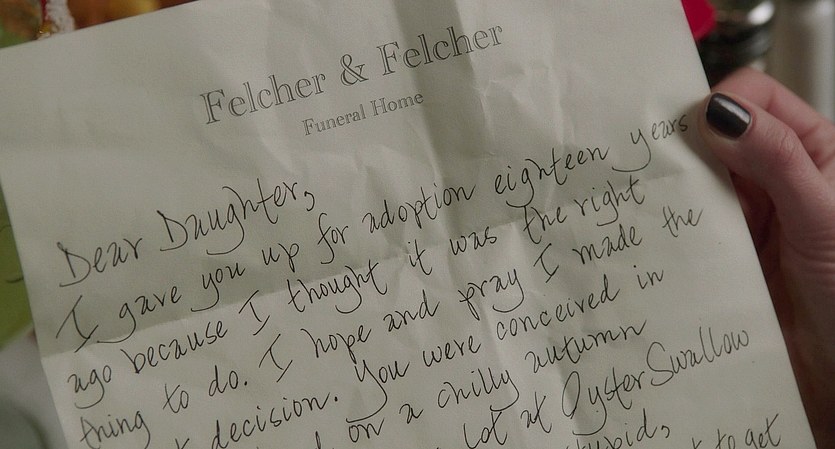 Felcher & Felcher
Funeral Home
Dear Daughter,
I gave you up for adoption eighteen years
ago because I thought it was the right
thing to do. I hope and pray I made the
decision. You were conceived in
on a chilly autumn
lot at OysterSwallow
stupid,
to get